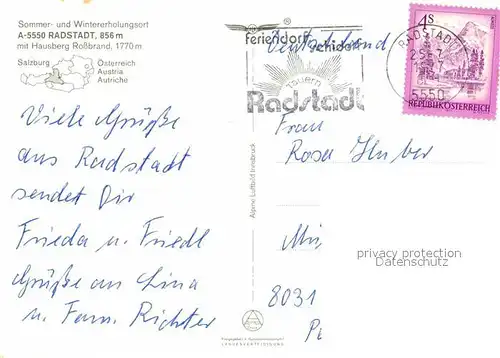 Sommer- und Wintererholungsort
A-5550 RADSTADT, 856 m
mit Hausberg Roßbrand, 1770 m
Salzburg
Österreich
Austria
Autriche
Viele Grüße
aus Radstadt
sendet Dir
Frieda u. Friedl
Grüße an
u. Fam. Richter
Alpine Luftbild Innsbruck
®
feriendorf
Deutschland
tauern
Radstadt
RADSTADT
5550
4S
REPUBLIK ÖSTERREICH
Frau
Rosa Huber
privacy protection
Datenschutz
8031
LANDESVERTEIDIGUNG